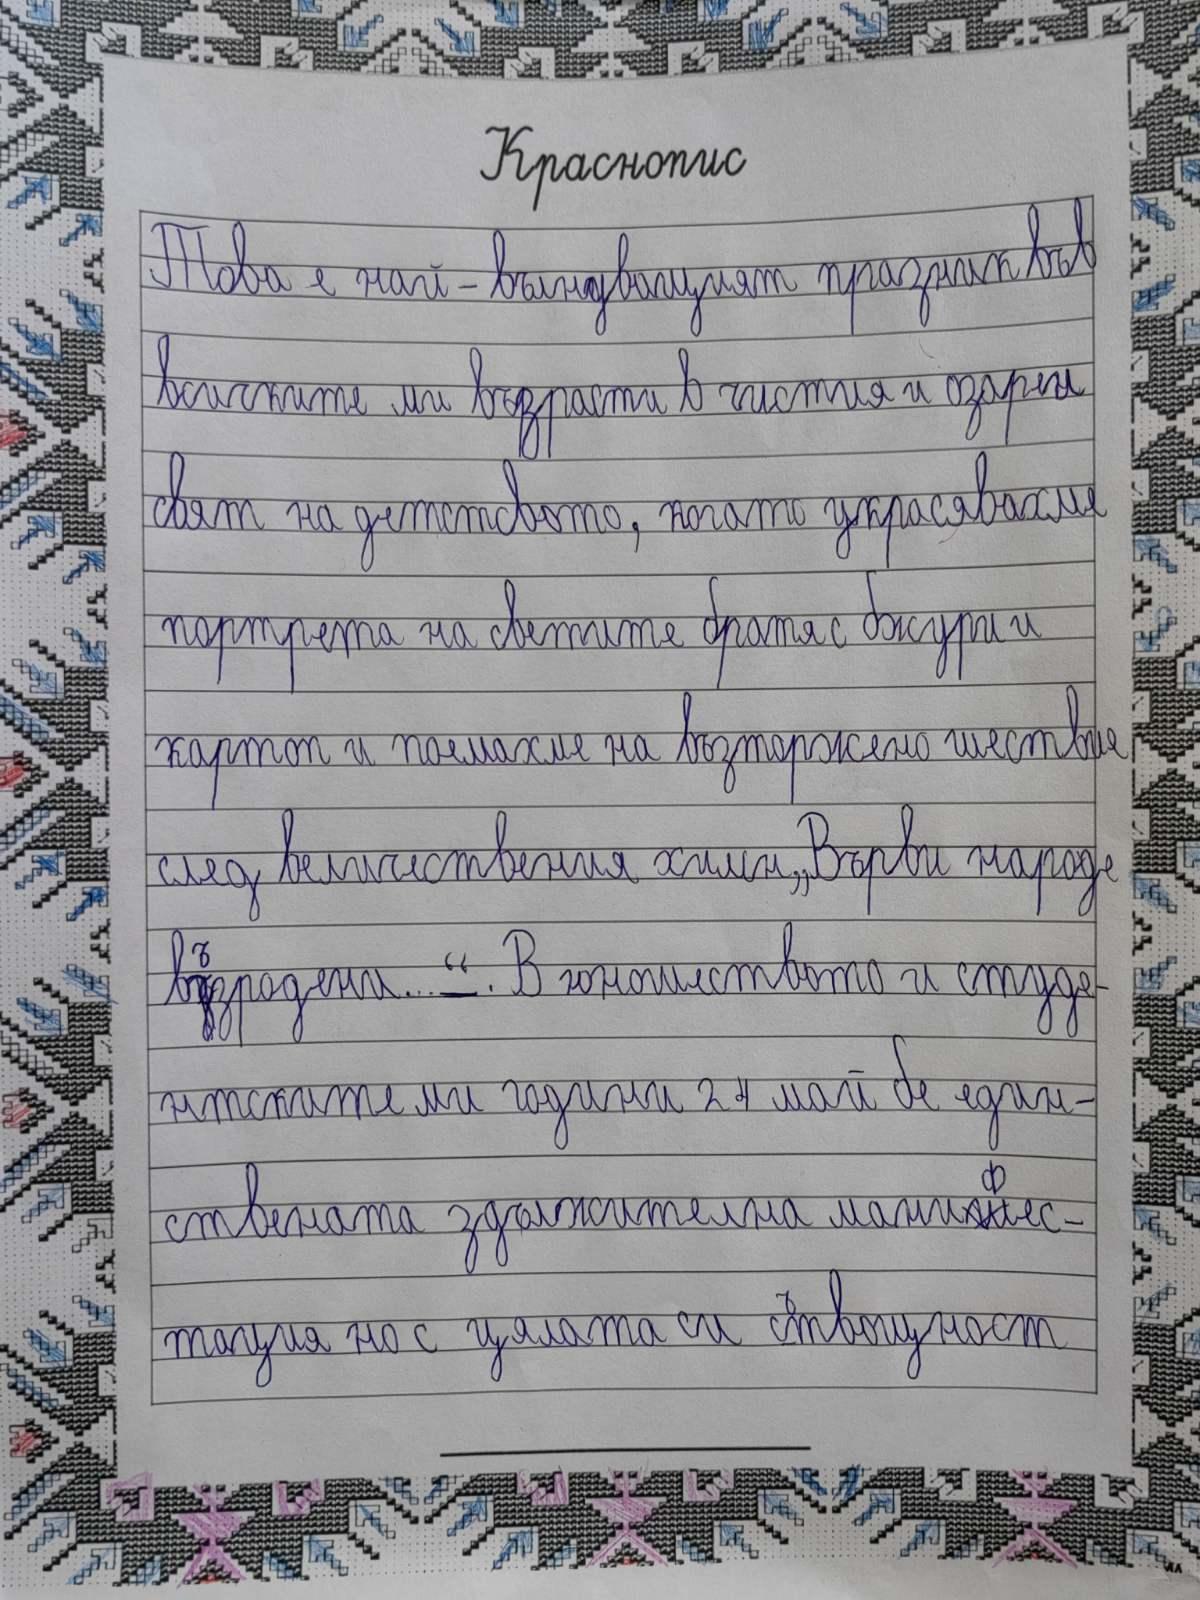 Краснопис
Това е най-вълнуващият празник във
всичките ми възрасти в чистия и озарен
свят на детството, когато украсявахме
портрета на светите братя с божури и
картоп и поемахме на възторжено шествие
след величествения химн „Върви народе
възродени...“. В юношеството и студе-
нтските ми години 24 май бе един-
ствената здължителна манифес-
тация но с цялата си същност